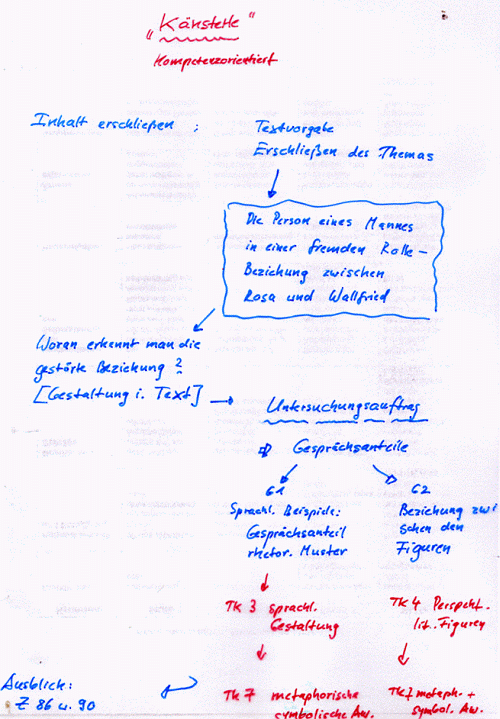 "Känsterle"
Kompetenzorientiert
Inhalt erschließen :
Textvorgabe
Erschließen des Themas
Die Person eines Mannes
in einer fremden Rolle –
Beziehung zwischen
Rosa und Wallfried
Woran erkennt man die
gestörte Beziehung ?
[Gestaltung i. Text]
Untersuchungsauftrag
Gesprächsanteile
G1
Sprachl. Beispiele:
Gesprächsanteil
rhetor. Muster
G2
Beziehung zwi
schen den
Figuren
TK 3 sprachl.
Gestaltung
TK 4 Perspekt.
lit. Figuren
Ausblick:
Z 86 u. 90
TK 7 metaphorische
symbolische Aw.
TK 7 metaph. +
symbol. Aw.